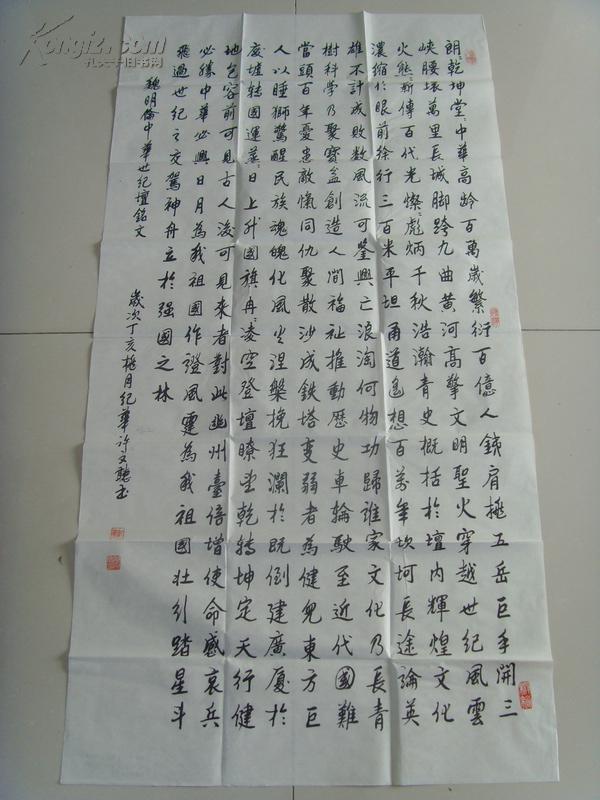 朗乾坤堂堂中華高龄百萬歲繁衍百億人鐵肩挑五岳巨手開三
峡腰壞萬里長城脚跨九曲黄河高擎文明聖火穿越世紀風雲
火態薪傳百代光燦彪炳千秋浩瀚青史概括於壇内輝煌文化
濃缩於眼前徐行三百米平坦甬道遥想百萬年坎坷長途論英
雄不計成敗数風流可鑒興亡浪淘何物功歸誰家文化乃長青
樹科学乃聚寳盆創造人間福祉推動歷史車輪駛至近代國難
當頭百年憂患敵愾同仇聚散沙成鉄塔变弱者為健兒東方巨
人以睡獅驚醒民族魂魄化風火涅槃挽狂瀾於既倒建廣廈於
废墟转國運
日上升國旗冉冉凌空登壇瞭望乾转坤定天行健
地包容前可見古人後可見來者對此幽州臺倍增使命感哀兵
必勝中華必興日月為我祖國作證風雲為我祖國壮行踏星斗
飛過世紀之交駕神舟立於强國之林
魏明倫中華世紀壇銘文
歲次丁亥桃月紀華許又聽书
Kongfz.com
孔夫子旧书网